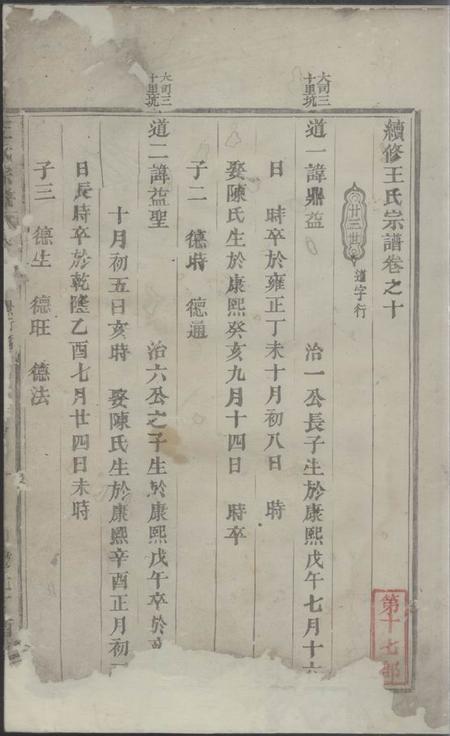 續修王氏宗譜卷之十
廿三世
道字行
大司三
十里坑
道一諱鼎益 治一公長子生於康熙戊午七月十六
日 時卒於雍正丁未十月初八日 時
娶陳氏生於康熙癸亥九月十四日 時卒
子二 德時 德通
大司三
十里坑
道二諱益聖 治六公之子生於康熙戊午卒於
十月初五日亥時 娶陳氏生於康熙辛酉正月初
日長時卒於乾隆乙酉七月廿四日未時
子三 德生 德旺 德法
第十七部